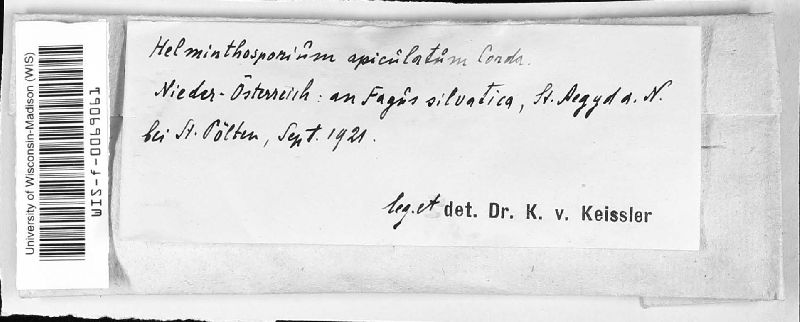 Helminthosporium apiculatum Corda.
Nieder-Österreich: an Fagus silvatica, St. Aegyd a. N.
bei St. Pölten, Sept. 1921.
leg. et det. Dr. K. v. Keissler
University of Wisconsin-Madison (WIS)
WIS-f-0069061